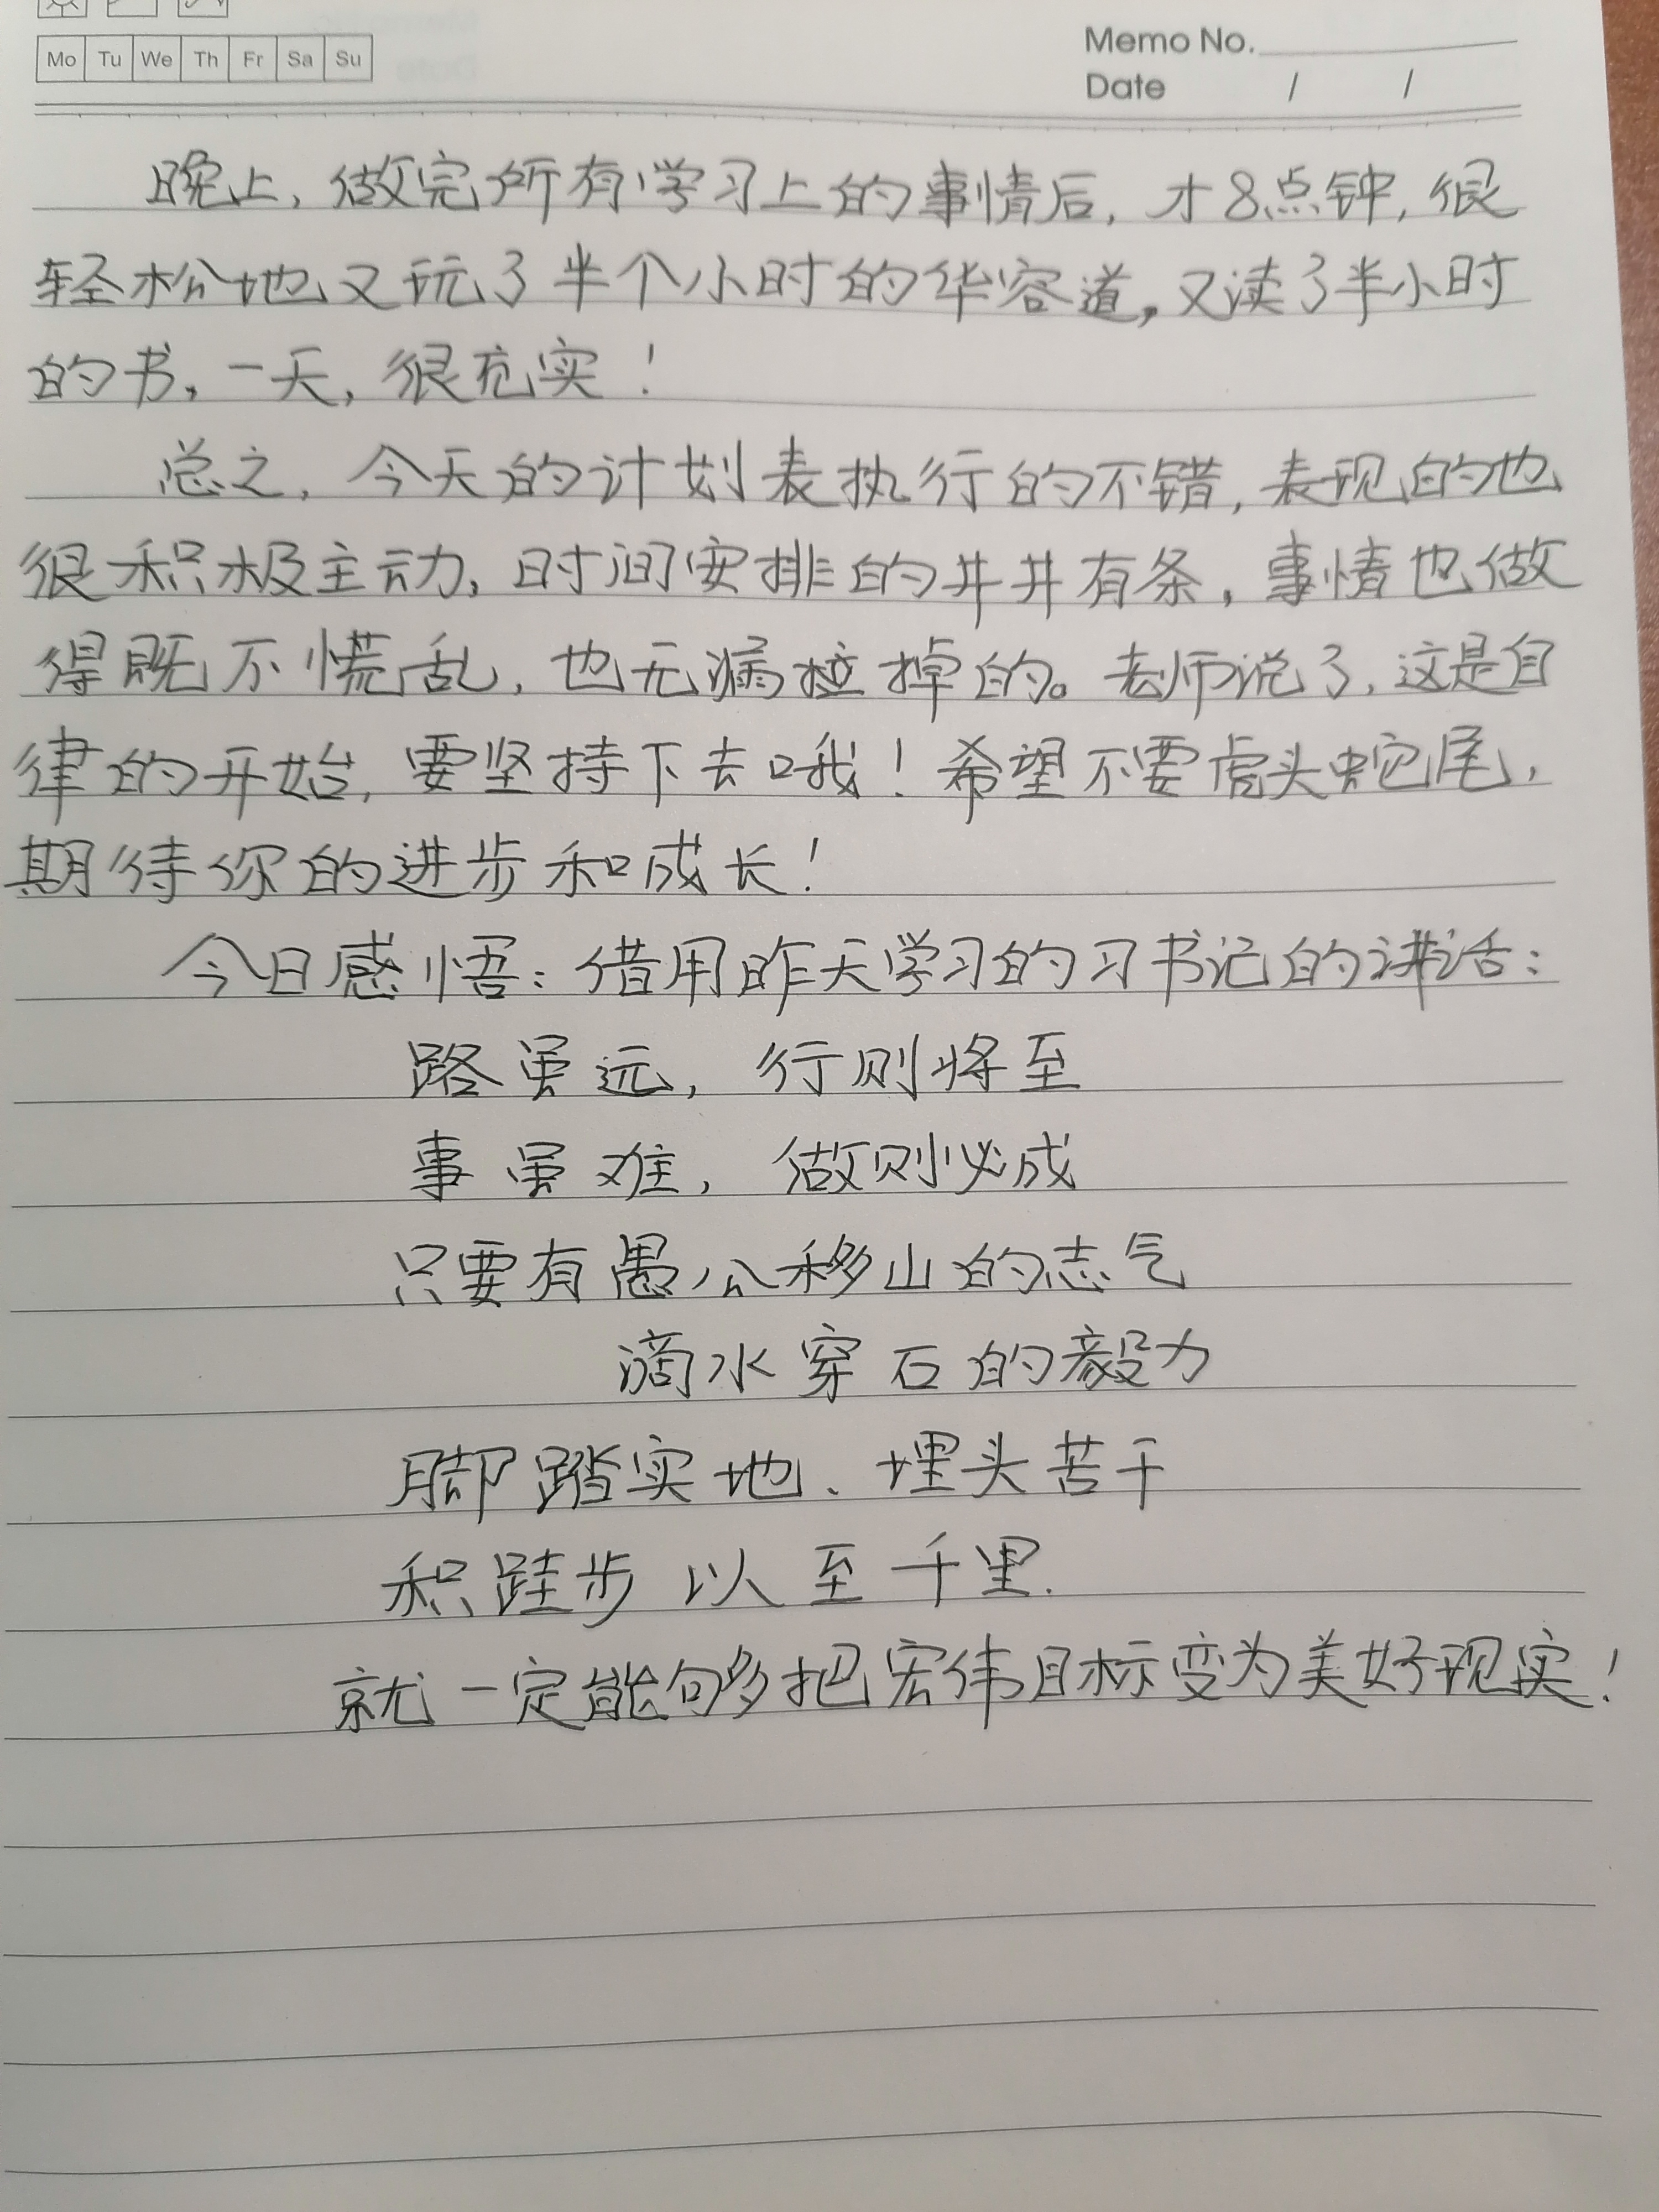 Mo Tu We Th Fr Sa Su
Memo No.
Date / /
晚上，做完所有学习上的事情后，才8点钟，很
轻松地又玩了半个小时的华容道，又读了半小时
的书，一天，很充实！
总之，今天的计划表执行的不错，表现的也
很积极主动，时间安排的井井有条，事情也做
得既不慌乱，也无漏拉掉的。老师说了，这是自
律的开始，要坚持下去哦！希望不要虎头蛇尾，
期待你的进步和成长！
今日感悟：借用昨天学习的习书记的讲话：
路虽远，行则将至
事虽难，做则必成
只要有愚公移山的志气
滴水穿石的毅力
脚踏实地、埋头苦干
积跬步以至千里.
就一定能够把宏伟目标变为美好现实！